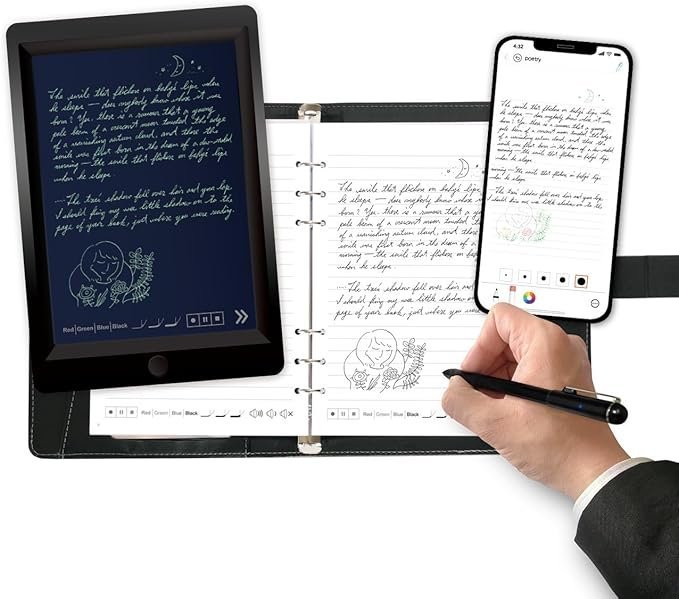 The smile that flickers on baby's lips when
he sleeps — does anybody know where it was
born? Yes, there is a rumor that a young
pale beam of a crescent moon touched the edge
of a vanishing autumn cloud, and there the
smile was first born in the dream of a
morning — the smile that flickers on baby's lips
when he sleeps.
.... The tree's shadow fell over hair and your lap,
I should fling my wee little shadow on to the
page of your book, just where you were reading.
Red | Green | Blue | Black
The smile that flickers on baby's lips
he sleeps — does anybody know where
born? Yes, there is a rumor that a
pale beam of a crescent moon touched
of a vanishing autumn cloud, and
smile was first born in the dream of a
morning — the smile that flickers on baby's
when he sleeps.
.... The tree's shadow fell over hair and your
I should fling my wee little shadow on to the
page of your book, just where you were reading.
Red | Green | Blue | Black
Red | Green | Blue | Black
4:32
poetry
The smile that flickers on baby's lips when
he sleeps — does anybody know where it was
born? Yes, there is a rumor that a young
pale beam of a crescent moon touched the edge
of a vanishing autumn cloud, and there the
smile was first born in the dream of a
morning — the smile that flickers on baby's lips
when he sleeps.
.... The tree's shadow fell over hair and your lap,
I should fling my wee little shadow on to the
page of your book, just where you were reading.